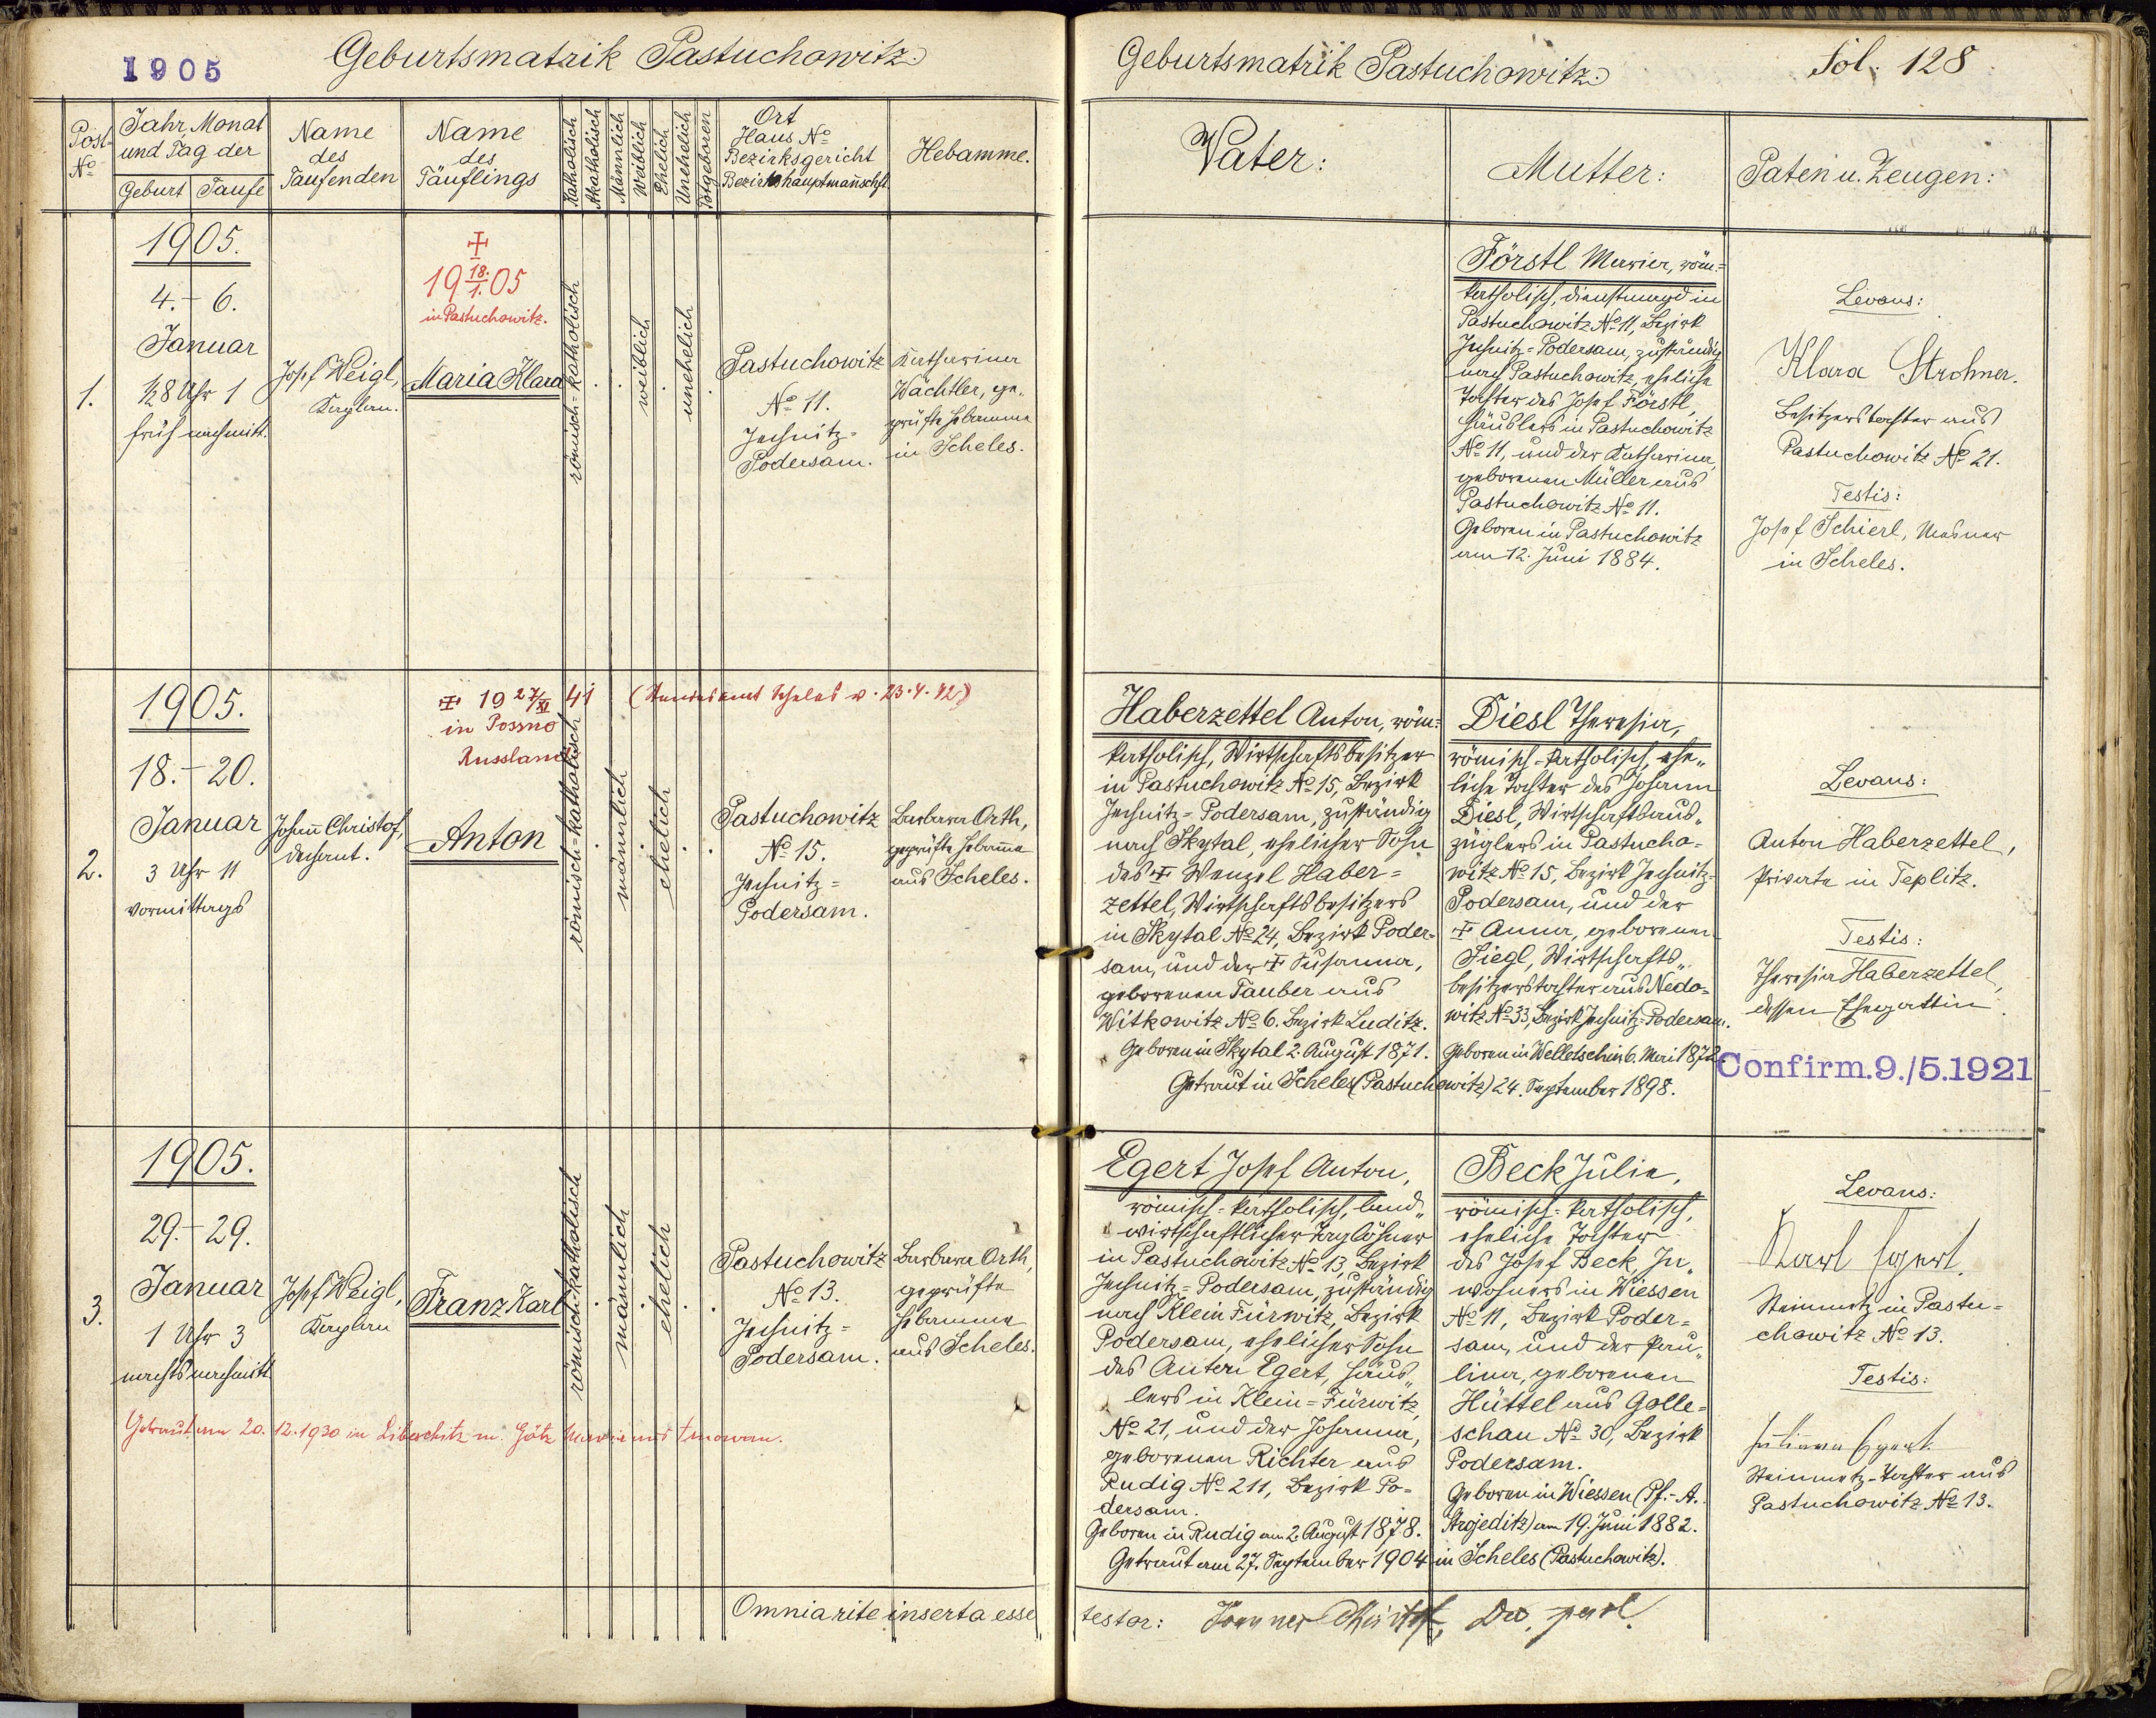 1905
Geburtsmatrik Pastuchowitz.
Post-
No
Jahr, Monat
und Tag der
Geburt Taufe
Name
des
Taufenden
Name
des
Täuflings
Katholisch
Akatholisch
Männlich
Weiblich
Ehelich
Unehelich
Totgeboren
Ort
Haus No
Bezirksgericht
Bezirkshauptmannschft.
Hebamme.
1.
1905.
4. - 6.
Januar
½8 Uhr 1
früh nachmitt.
Josef Weigl,
Kaplan.
18.
1905
1.
in Pastuchowitz.
Maria Klara
römisch-katholisch
weiblich
unehelich
Pastuchowitz
No 11.
Jechnitz-
Podersam.
Katharina
Wächtler, ge-
prüfte Hebamme
in Scheles.
2.
1905.
18. - 20.
Januar
3 Uhr 11
vormittags
Johann Christof,
Dechant.
19 27/XI 41 (Standesamt Scheles v. 23.4.42)
in Possno
Russland
Anton
römisch-katholisch
männlich
ehelich
Pastuchowitz
No 15.
Jechnitz-
Podersam.
Barbara Orth,
geprüfte Hebamme
aus Scheles.
3.
1905.
29. - 29.
Januar
1 Uhr 3
nachts nachmitt.
Josef Weigl,
Kaplan
Franz Karl
römisch-katholisch
männlich
ehelich
Pastuchowitz
No 13.
Jechnitz-
Podersam.
Barbara Orth,
geprüfte
Hebamme
aus Scheles.
Getraut am 20.12.1930 in Libeschitz m. Götz Maria aus
Omnia rite inserta esse
Geburtsmatrik Pastuchowitz.
Fol. 128
Vater:
Mutter:
Paten u. Zeugen:
Förstl Maria, röm-
katholisch, Dienstmagd in
Pastuchowitz No 11, Bezirk
Jechnitz-Podersam, zuständig
nach Pastuchowitz, eheliche
Tochter des Josef Förstl,
Häuslers in Pastuchowitz
No 11, und der Katharina,
geborenen Müller aus
Pastuchowitz No 11.
Geboren in Pastuchowitz
am 12. Juni 1884.
Levans:
Klara Strohner.
Besitzerstochter aus
Pastuchowitz No 21.
Testis:
Josef Schierl, Mesner
in Scheles.
Haberzettel Anton, röm-
katholisch, Wirtschaftsbesitzer
in Pastuchowitz No 15, Bezirk
Jechnitz-Podersam, zuständig
nach Skytal, ehelicher Sohn
des Wenzel Haber-
zettel, Wirtschaftsbesitzers
in Skytal No 24, Bezirk Poder-
sam, und der Susanna,
geborenen Tauber aus
Witkowitz No 6. Bezirk Luditz.
Geboren in Skytal 2. August 1871.
Diesl Theresia,
römisch-katholisch, ehe-
liche Tochter des Johann
Diesl, Wirtschaftsaus-
züglers in Pastucho-
witz No 15, Bezirk Jechnitz-
Podersam, und der
Anna, geborenen
Siegl, Wirtschafts-
besitzerstochter aus Nedo-
witz No 33, Bezirk Jechnitz-Podersam.
Geboren in Welletschin 6. Mai 1872.
Getraut in Scheles (Pastuchowitz) 24. September 1898.
Levans:
Anton Haberzettel,
Private in Teplitz.
Testis:
Theresia Haberzettel,
dessen Ehegattin.
Confirm.9./5.1921
Egert Josef Anton,
römisch-katholisch, land-
wirtschaftlicher Taglöhner
in Pastuchowitz No 13, Bezirk
Jechnitz-Podersam, zuständig
nach Klein Fürwitz, Bezirk
Podersam, ehelicher Sohn
des Anton Egert, Häus-
lers in Klein-Fürwitz
No 21, und der Johanna,
geborenen Richter aus
Rudig No 211, Bezirk Po-
dersam.
Geboren in Rudig am 2. August 1878.
Beck Julie,
römisch-katholisch,
eheliche Tochter
des Josef Beck, In-
wohners in Wiessen
No 11, Bezirk Poder-
sam, und der Pau-
lina, geborenen
Hüttel aus Golle-
schau No 30, Bezirk
Podersam.
Geboren in Wiessen (Pf.-A.
Strojeditz) am 19. Juni 1882.
Getraut am 27. September 1904 in Scheles (Pastuchowitz).
Levans:
Karl Egert.
Steinmetz in Pastu-
chowitz No 13.
Testis:
Juliana Egert
Steinmetz-Tochter aus
Pastuchowitz No 13.
testor: Joannes Christof,